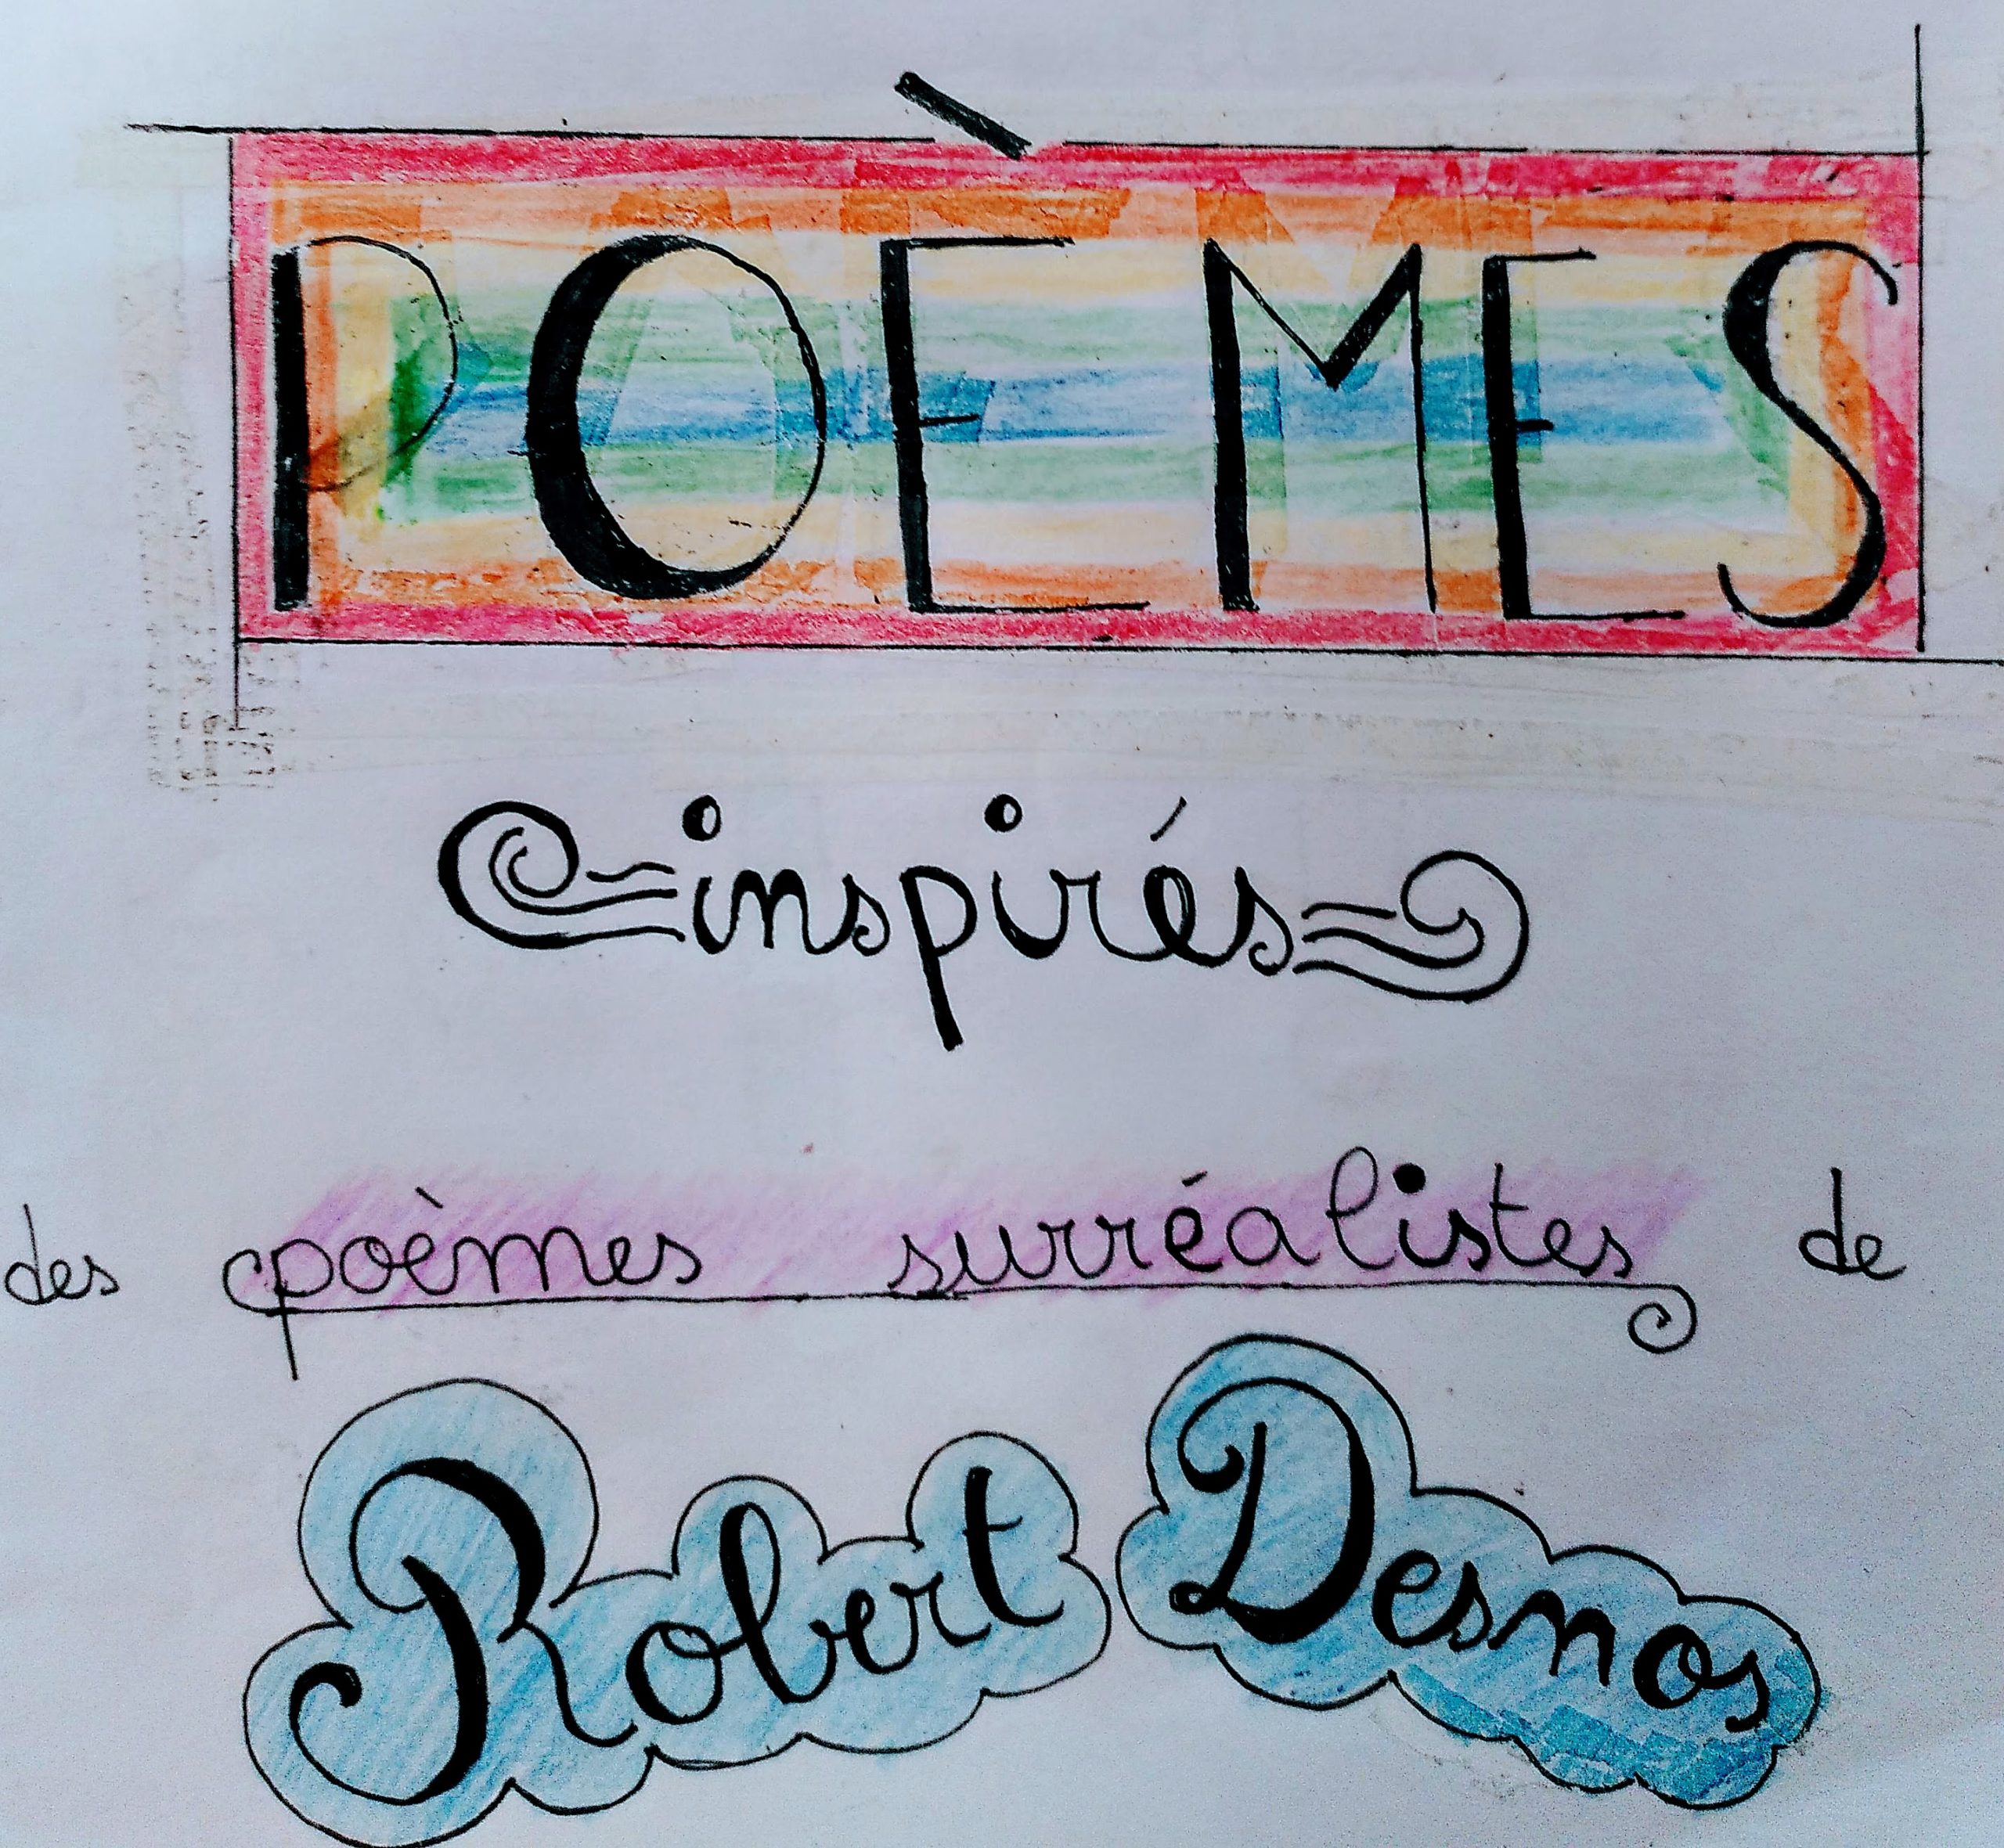 POÈMES
inspirés
des poèmes surréalistes de
Robert Desnos